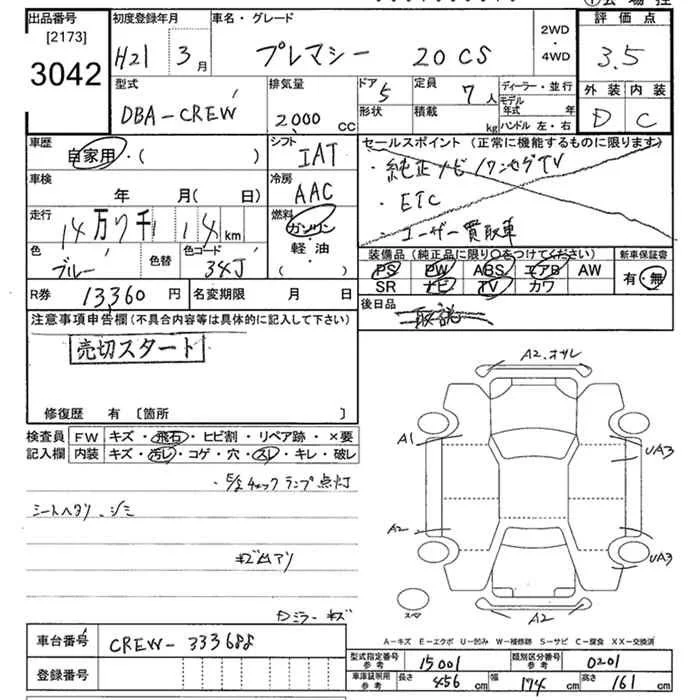 出品番号
[2173]
3042
初度登録年月
H21年 3月
車名・グレード
プレマシー 20CS
2WD
・
4WD
評価点
3.5
外装 内装
D C
型式
DBA-CREW
排気量
2,000 cc
ドア 5
形状
定員 7人
積載 kg
ディーラー・並行
モデル年式 年
ハンドル 左・右
車歴
自家用・( )
シフト
IAT
車検
年 月( 日)
冷房
AAC
走行
14万り千114km
燃料
ガソリン・
軽油・
( )
色
ブルー
色替
色コード
34J
セールスポイント (正常に機能するものに限ります)
・純正ナビ/ワンセグTV
・ETC
・ユーザー買取車
装備品 (純正品に限り○をつけてください)
PS PW ABS エアB AW
SR ナビ TV カワ
新車保証書
有・無
R券 13360円
名変期限 月 日
後日品
取説
注意事項申告欄(不具合内容等は具体的に記入して下さい)
売切スタート
修復歴 有 〔箇所 〕
検査員 FW キズ・飛石・ヒビ割・リペア跡・×要
記入欄 内装 キズ・汚レ・コゲ・穴・スレ・キレ・破レ
・E/gチェックランプ点灯
シートヘタリ、シミ
キズ凹アリ
Dミラーキズ
A2.オサレ
A1
UA3
A2
UA3
スマ
A2
A-キズ E-エクボ U-凹み W-補修跡 S-サビ C-腐食 XX-交換済
車台番号 CREW-333688
登録番号
型式指定番号 参考 15001
類別区分番号 参考 0201
車庫証明用 参考 長さ 456cm 幅 174cm 高さ 161cm